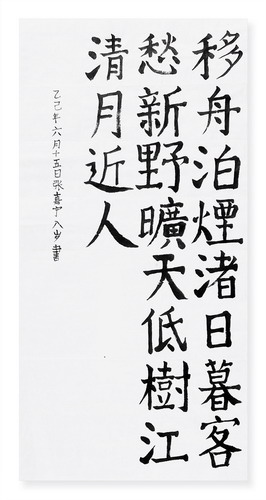 移舟泊煙渚日暮客
愁新野曠天低樹江
清月近人
乙己年六月十五日张嘉宁八岁書